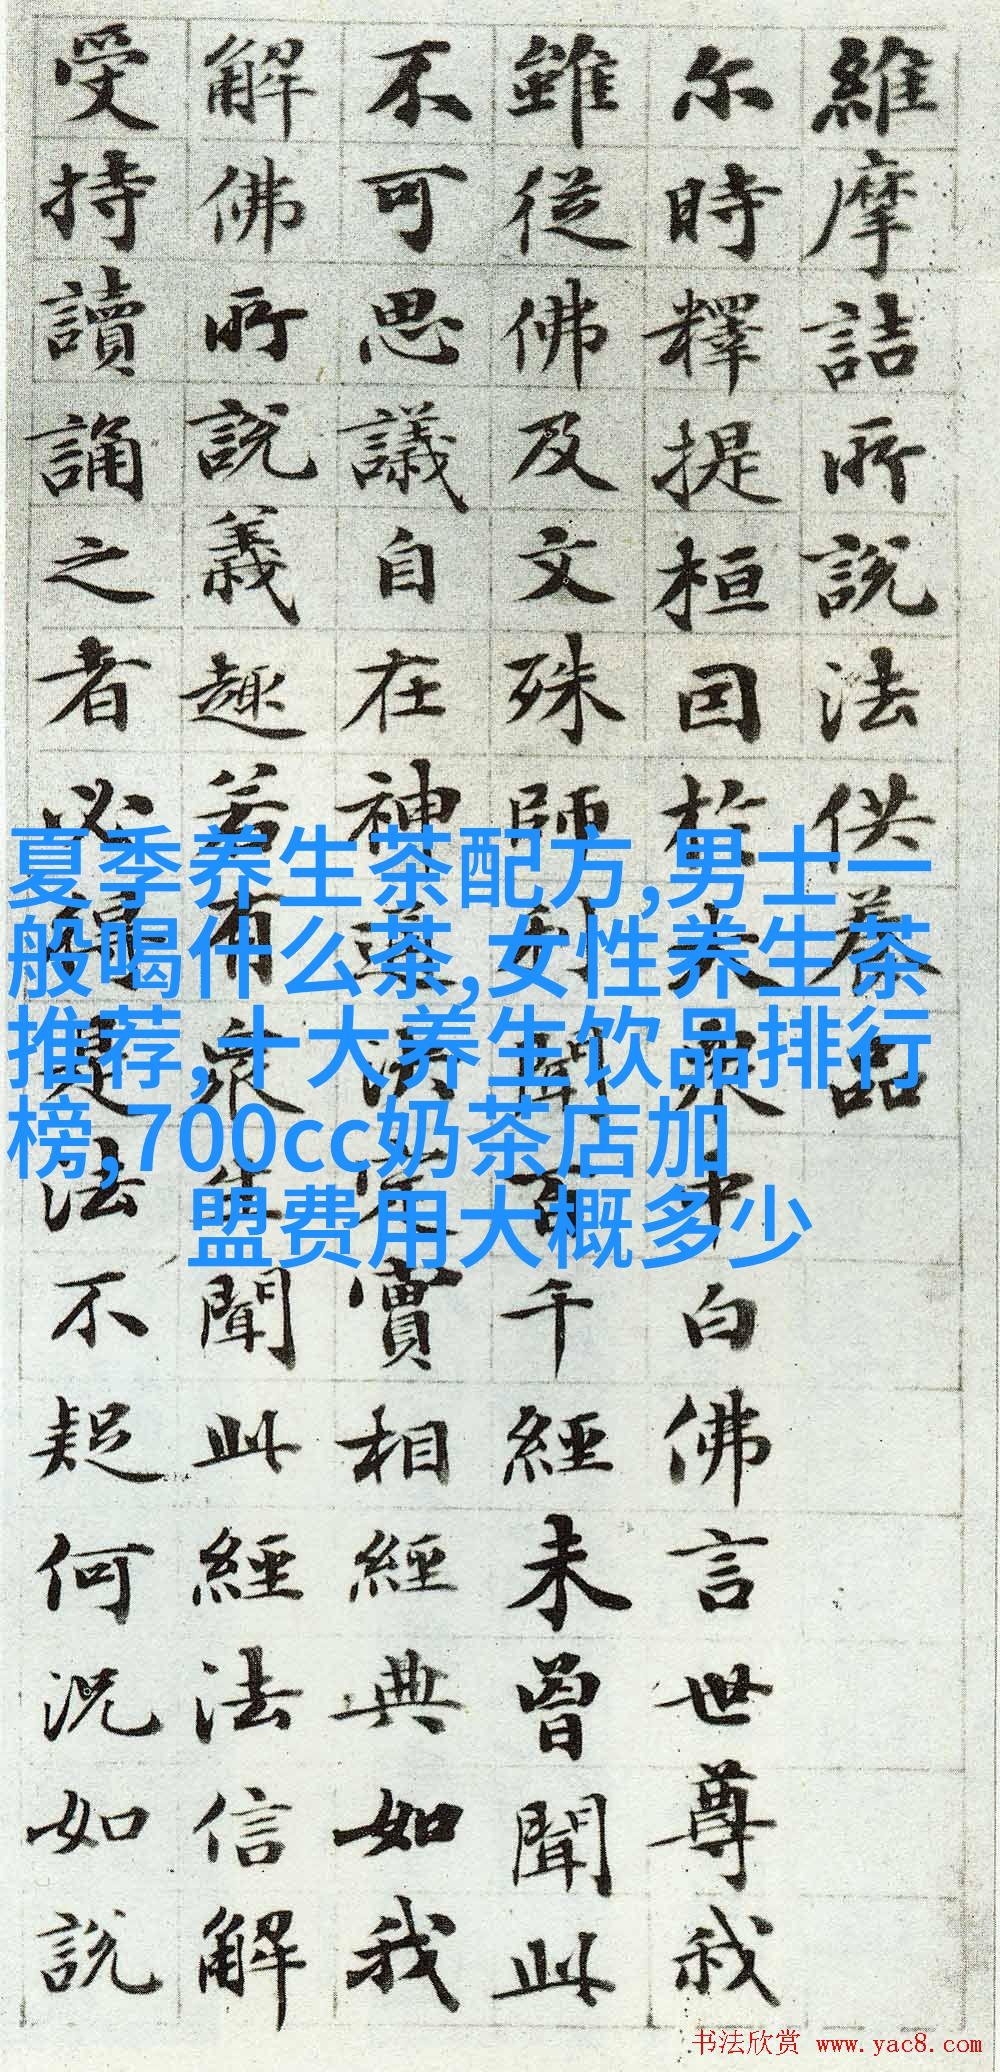 維摩詰所說法供養品
尔時釋提桓因於大眾中白佛言世尊我
雖從佛及文殊師利聞百千經未曾聞此
不可思議自在神通決定實相經典如我
解佛所說義趣若有眾生聞此經法信解
受持讀誦之者必得是法不疑何況如說
夏季养生茶配方,男士一
般喝什么茶,女性养生茶
推荐,十大养生饮品排行
榜,700cc奶茶店加
盟费用大概多少
书法欣赏 www.yac8.com